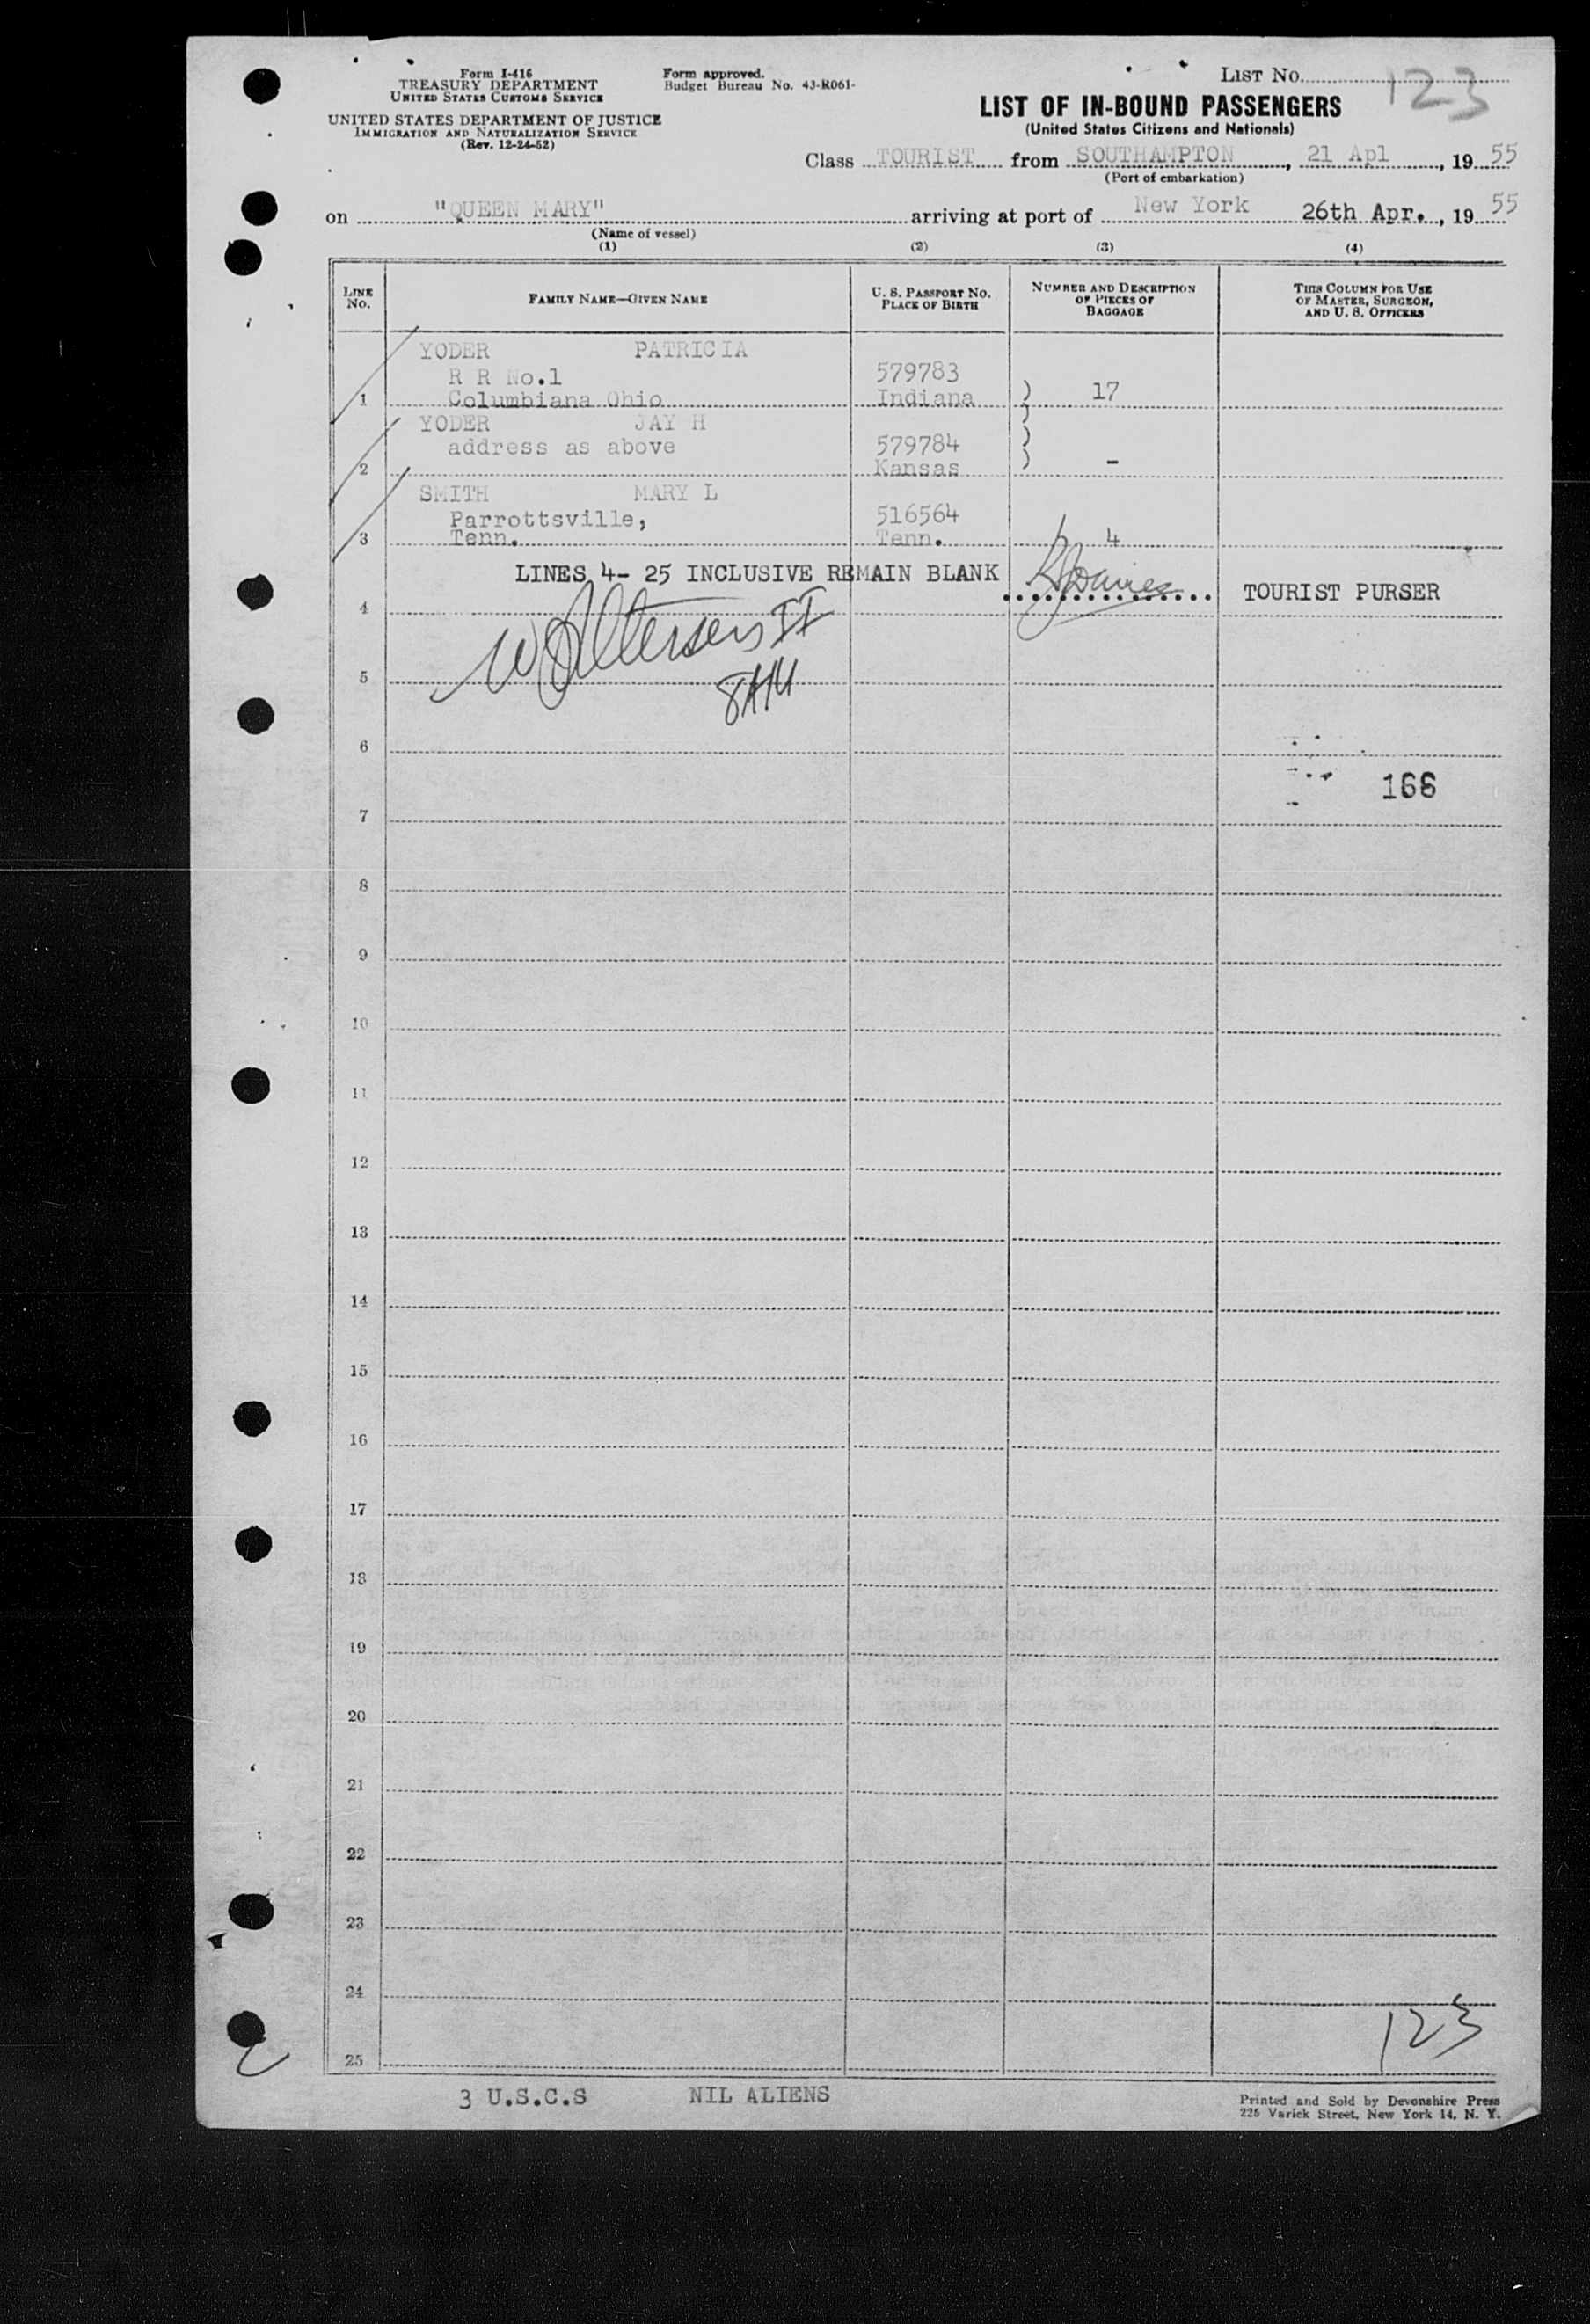 Form I-416
TREASURY DEPARTMENT
UNITED STATES CUSTOMS SERVICE
UNITED STATES DEPARTMENT OF JUSTICE
IMMIGRATION AND NATURALIZATION SERVICE
(Rev. 12-24-52)
Form approved.
Budget Bureau No. 43-R061-
LIST NO. 123
LIST OF IN-BOUND PASSENGERS
(United States Citizens and Nationals)
Class TOURIST from SOUTHAMPTON, 21 Apl, 19 55
(Port of embarkation)
on "QUEEN MARY" arriving at port of New York 26th Apr., 19 55
(Name of vessel)
(1) (2) (3) (4)
LINE NO. FAMILY NAME—GIVEN NAME U. S. PASSPORT NO. PLACE OF BIRTH NUMBER AND DESCRIPTION OF PIECES OF BAGGAGE THIS COLUMN FOR USE OF MASTER, SURGEON, AND U. S. OFFICERS
YODER PATRICIA
R R No.1 579783
1 Columbiana Ohio Indiana ) 17
YODER JAY H )
address as above 579784 )
2 Kansas ) -
SMITH MARY L
Parrottsville, 516564
3 Tenn. Tenn. 4
LINES 4- 25 INCLUSIVE REMAIN BLANK
4 TOURIST PURSER
5
6
166
7
8
9
10
11
12
13
14
15
16
17
18
19
20
21
22
23
24
123
25
3 U.S.C.S NIL ALIENS
Printed and Sold by Devonshire Press
225 Varick Street, New York 14, N. Y.